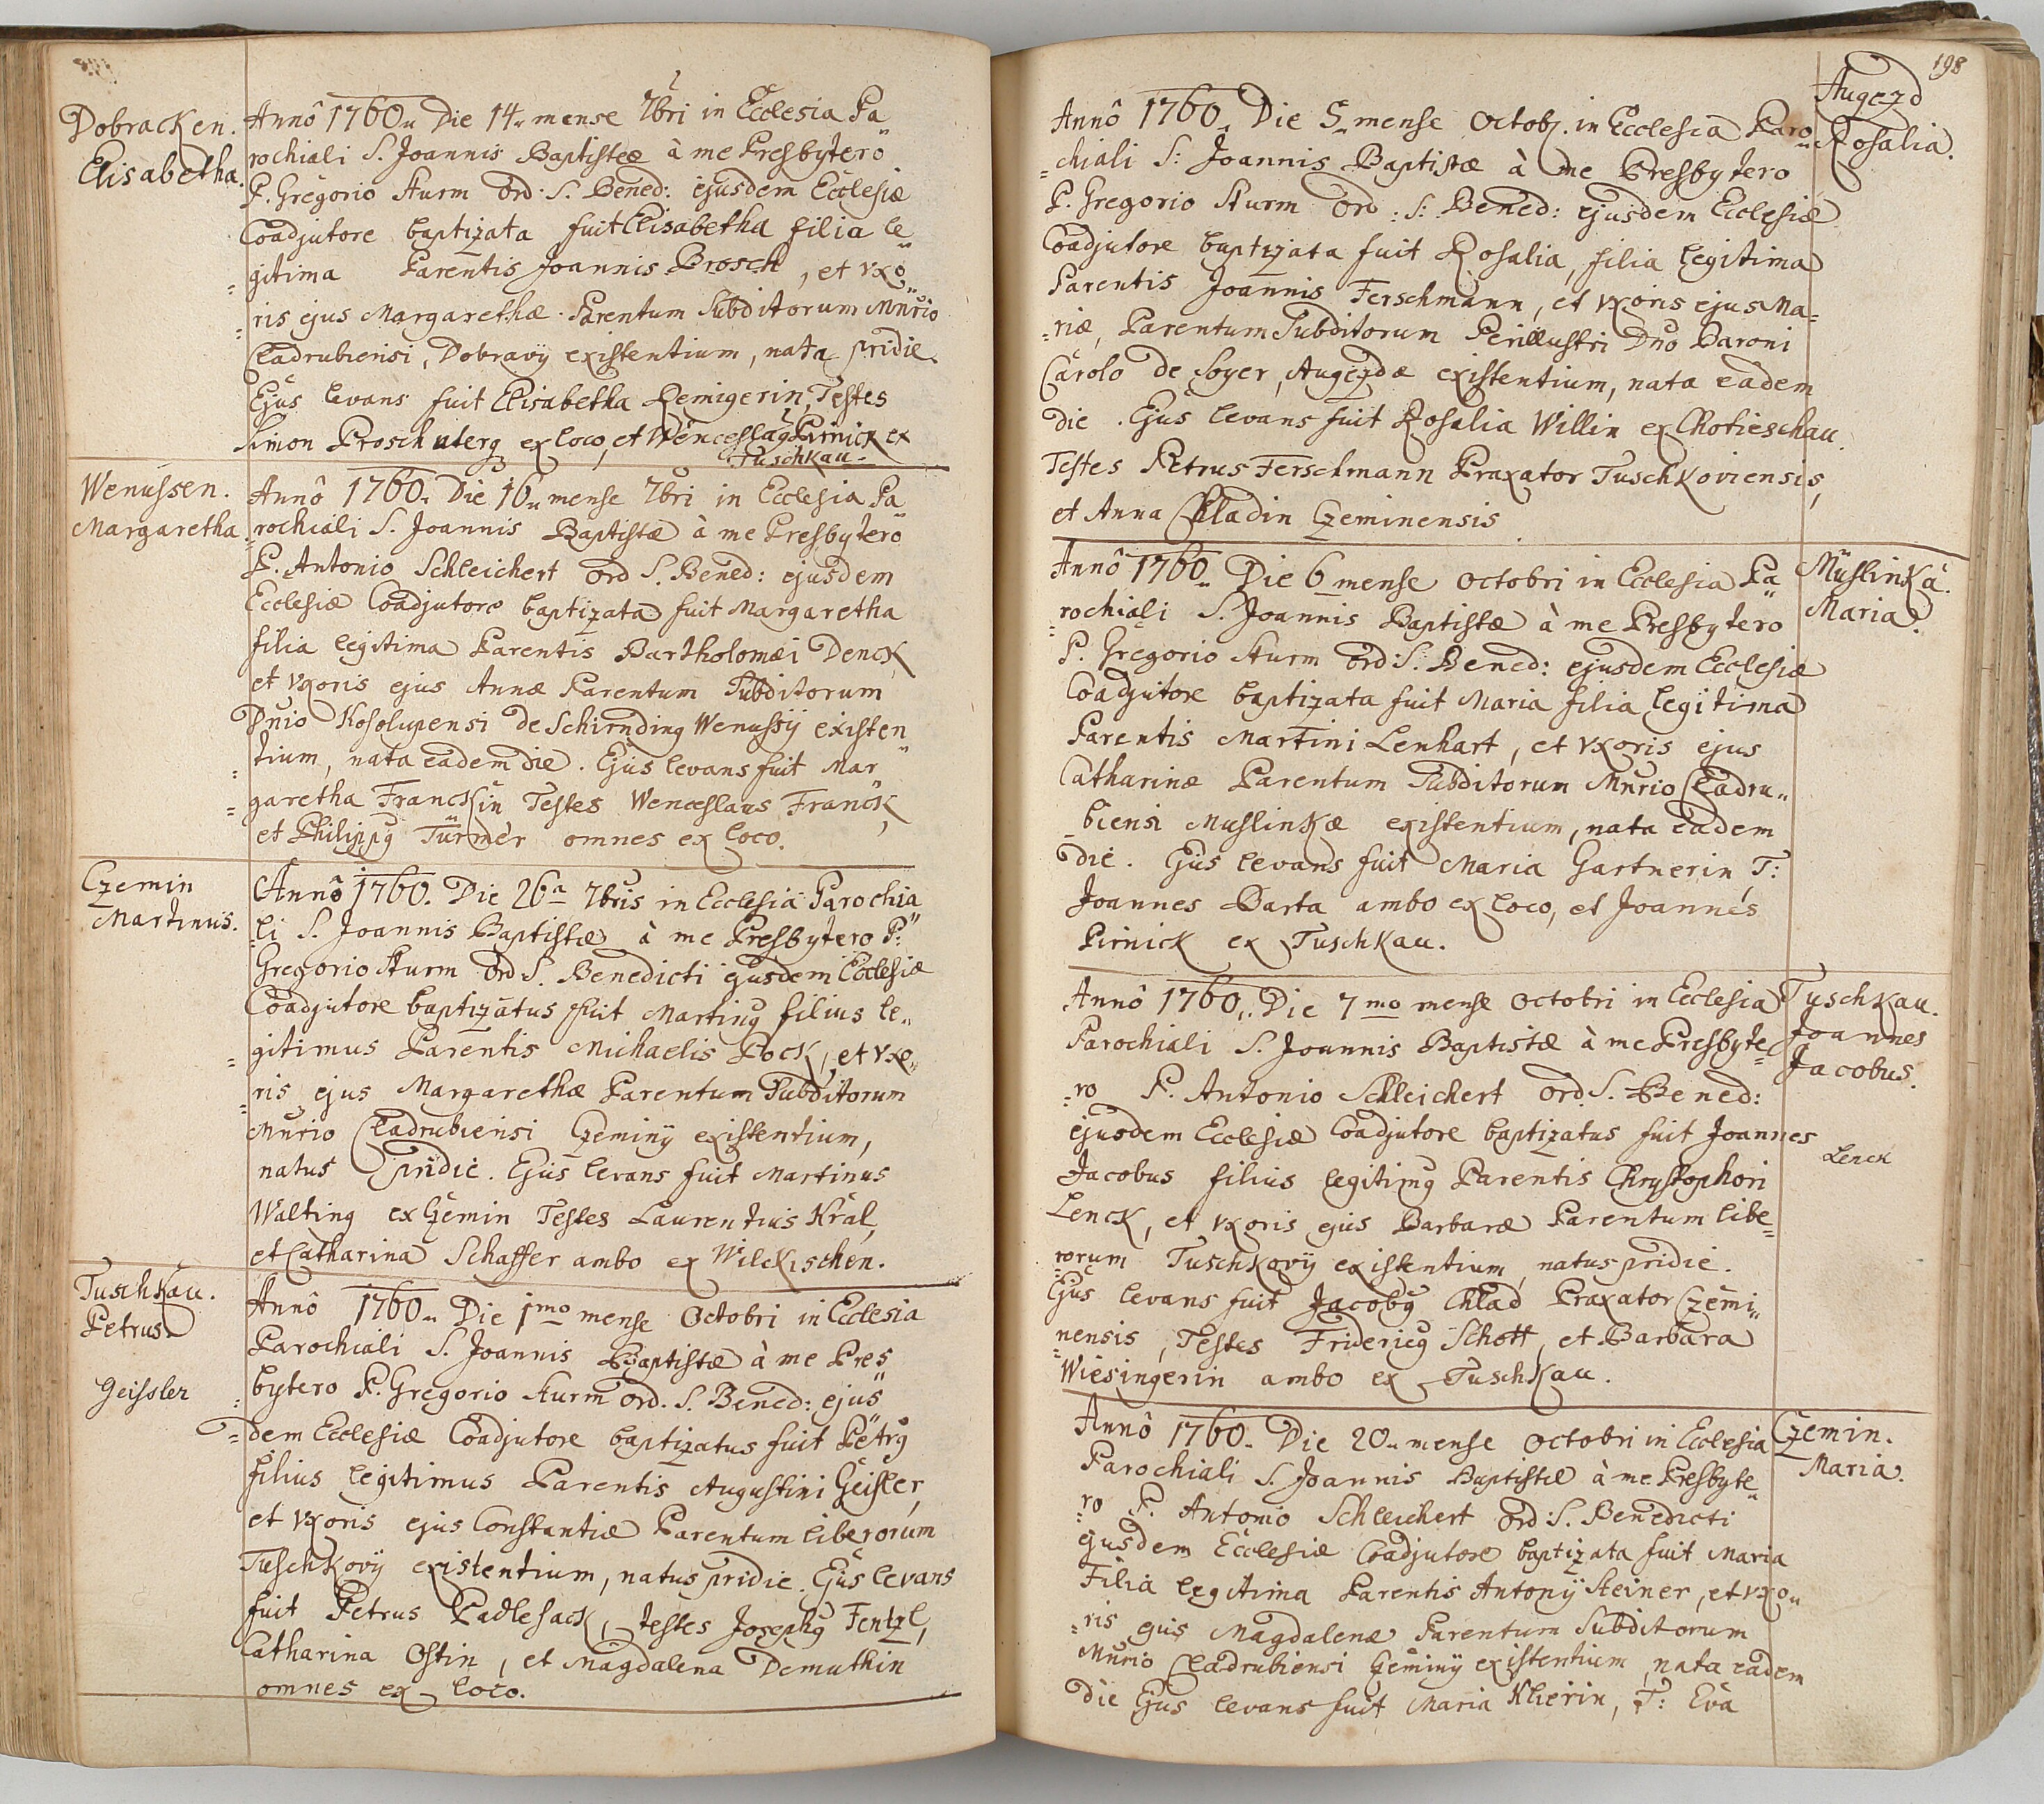 Dobracken.
Elisabetha.
Annô 1760 Die 14 mense 7bri in Ecclesia Pa
rochiali S. Joannis Baptisteæ à me Presbytero
P. Gregorio Sturm Ord. S. Bened: ejusdem Ecclesiæ
Coadjutore baptizata fuit Elisabetha filia le
gitima Parentis Joannis Brosch, et uxo
ris ejus Margarethæ Parentum Subditorum Mnrio
Cladrubiensi, Dobravÿ existentium, nata pridie.
Ejus levans fuit Elisabetha Remigerin, Testes
Simon Prosch uterq ex loco, et Wenceslaq Pirnick ex
Tuschkau.
Wenussen.
Margaretha.
Annô 1760. Die 16 mense 7bri in Ecclesia Pa
rochiali S. Joannis Baptistæ à me Presbytero
P. Antonio Schleichert Ord S. Bened: ejusdem
Ecclesiæ Coadjutore baptizata fuit Margaretha
filia legitima Parentis Bartholomæi Denck
et Uxoris ejus Annæ Parentum Subditorum
Dnio Kosolupensi de Schirnding Wenussÿ existen
tium, nata eadem die. Ejus levans fuit Mar
garetha Franckin Testes Wenceslaus Franck,
et Philippq Türmer omnes ex loco.
Czemin
Martinus.
Annô 1760. Die 26ta 7bris in Ecclesia Parochia
li S. Joannis Baptistæ à me Presbytero P:
Gregorio Sturm Ord S. Benedicti ejusdem Ecclesiæ
Coadjutore baptizatus fuit Martinq filius le
gitimus Parentis Michaelis Pock, et uxo
ris ejus Margarethæ Parentum Subditorum
Mnrio Cladrubiensi Czeminÿ existentium,
natus pridie. Ejus levans fuit Martinus
Walting ex Czemin Testes Laurentius Kral,
et Catharina Schaffer ambo ex Wilckischen.
Tuschkau.
Petrus
Geissler
Annô 1760. Die 1mo mense Octobri in Ecclesia
Parochiali S. Joannis Baptistæ à me Pres
bytero P. Gregorio Sturm Ord. S. Bened: ejus
dem Ecclesiæ Coadjutore baptizatus fuit Petrq
filius legitimus Parentis Augustini Geisler,
et Uxoris ejus Constantiæ Parentum liberorum
Tuschkovÿ existentium, natus pridie. Ejus levans
fuit Petrus Padlesack, testes Josephq Fentzl,
Catharina Ostin, et Magdalena Demuthin
omnes ex loco.
198
Augezd
Rosalia.
Annô 1760. Die 5 mense Octob. in Ecclesia Paro
chiali S: Joannis Baptistæ à me Presbytero
P. Gregorio Sturm Ord: S: Bened: ejusdem Ecclesiæ
Coadjutore baptizata fuit Rosalia, filia legitima
Parentis Joannis Ferschmann, et Uxoris ejus Ma=
riæ, Parentum Subditorum Perillustri Dno Baroni
Carolo de Soyer, Augezdæ existentium, nata eadem
die. Ejus levans fuit Rosalia Willin ex Chotieschau.
Testes Petrus Ferschmann Praxator Tuschkoviensis,
et Anna Chladin Czeminensis.
Muslinka.
Maria.
Annô 1760 Die 6 mense Octobri in Ecclesia Pa
rochiali S. Joannis Baptistæ à me Presbytero
P. Gregorio Sturm Ord: S. Bened: ejusdem Ecclesiæ
Coadjutore baptizata fuit Maria filia legitima
Parentis Martini Lenhart, et Uxoris ejus
Catharinæ Parentum Subditorum Mnrio Cladru
biensi Muslinkæ existentium, nata eadem
die. Ejus levans fuit Maria Gartnerin T:
Joannes Barta ambo ex loco, et Joannes
Pirnick ex Tuschkau.
Tuschkau.
Joannes
Jacobus.
Lenck
Annô 1760. Die 7mo mense Octobri in Ecclesia
Parochiali S. Joannis Baptistæ à me Presbyte
ro P. Antonio Schleichert Ord. S. Bened:
ejusdem Ecclesiæ Coadjutore baptizatus fuit Joannes
Jacobus filius legitimq Parentis Chrystophori
Lenck, et Uxoris ejus Barbaræ Parentum libe
rorum Tuschkovÿ existentium, natus pridie.
Ejus levans fuit Jacobq Chlad Praxator Czemi
nensis, Testes Fridericq Schott, et Barbara
Wiesingerin ambo ex Tuschkau.
Czemin.
Maria.
Annô 1760. Die 20 mense Octobri in Ecclesia
Parochiali S. Joannis Baptistæ à me Presbyte
ro P. Antonio Schleichert Ord: S. Benedicti
ejusdem Ecclesiæ Coadjutore baptizata fuit Maria
Filia legitima Parentis Antonÿ Steiner, et uxo
ris ejus Magdalenæ Parentum Subditorum
Mnrio Cladrubiensi Czeminÿ existentium, nata eadem
Die Ejus levans fuit Maria Klierin, T: Eva